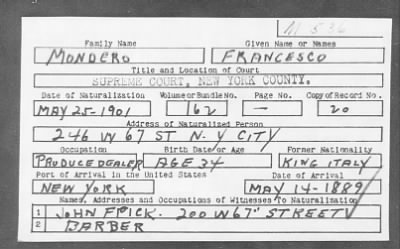 M 536
Family Name Given Name or Names
MONDERO FRANCESCO
Title and Location of Court
SUPREME COURT, NEW YORK COUNTY.
Date of Naturalization Volume or Bundle No. Page No. Copy of Record No.
MAY 25-1901 162 — 20
Address of Naturalized Person
246 W 67 ST N-Y CITY
Occupation Birth Date or Age Former Nationality
PRODUCE DEALER AGE 34 KING ITALY
Port of Arrival in the United States Date of Arrival
NEW YORK MAY 14-1889
Names, Addresses and Occupations of Witnesses To Naturalization
1 JOHN FRICK. 200 W 67" STREET
2 BARBER